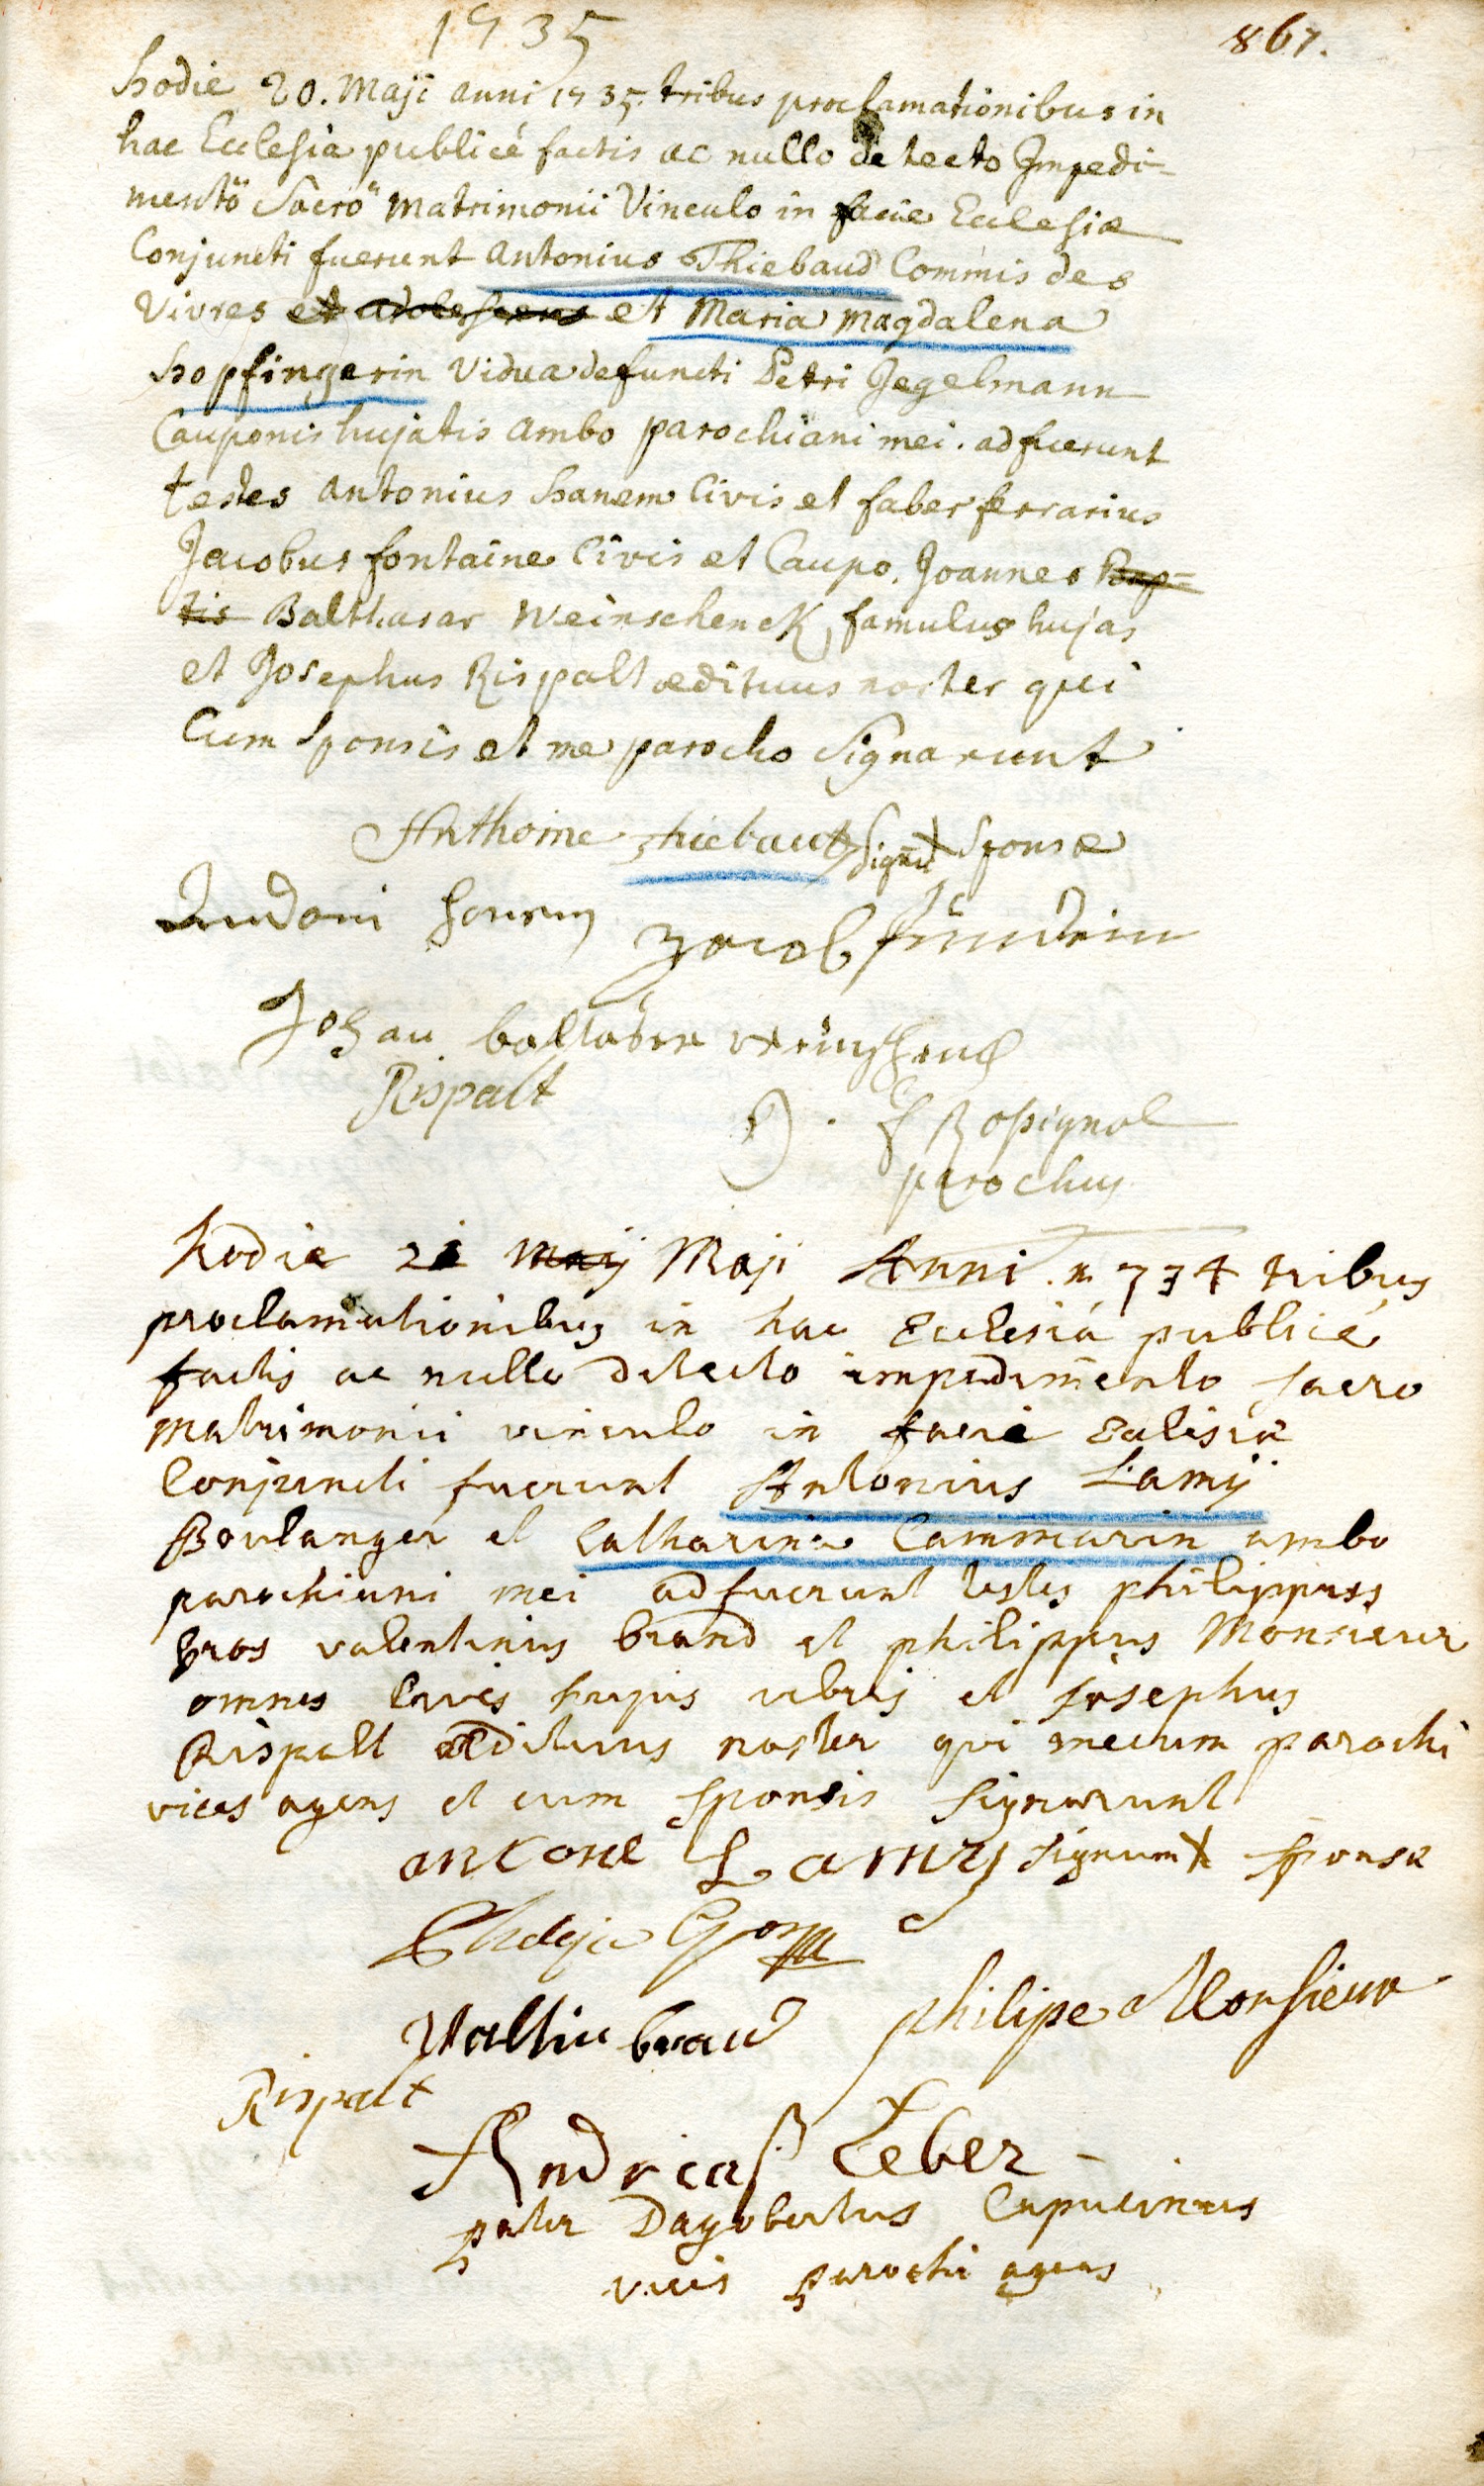 1735
867.
Hodie 20. Maji anni 1735. tribus proclamationibus in
hac Ecclesia publicè factis ac nullo detecto Impedi-
mento Sacro Matrimonii Vinculo in facie Ecclesiæ
Conjuncti fuerunt Antonius Thiebaud Commis des
Vivres et adolescens et Maria Magdalena
Hopfingerin Vidua defuncti Petri Jegelmann
Cauponis hujatis ambo parochiani mei. adfuerunt
testes Antonius Hanem Civis et faber ferrarius
Jacobus fontaine Civis et Caupo. Joannes Bap-
tis Balthasar Weinschenck famulus hujas
et Josephus Rispalt ædituus noster qui
Cum Sponsis et me parocho Signarunt
Anthoine thiebaut Signu Sponsæ
Andoni Hanem Jacob
Johan baltaser
Rispalt
Rosignol
parochus
hodie 21 Maij Maji Anni 1734 tribus
proclamationibus in hac Ecclesiá publicé
factis ac nullo detecto impedimento sacro
matrimonii vinculo in facie Ecclesiæ
Conjuncti fuerunt Antonius Lamÿ
Boulanger et Catharina Cammarin ambo
parochiani mei adfuerunt testes philippus
gros valentinus brand et philippus Monsieur
omnes cives hujus urbis et josephus
Rispalt ædituus noster qui mecum parochi
vices agens et cum sponsis signarunt
antone Lamy signum sponsæ
Valtin brand philipe Monsieur
Rispalt
Andreas Leber
pater Dagobertus Capucinus
vices parochi agens